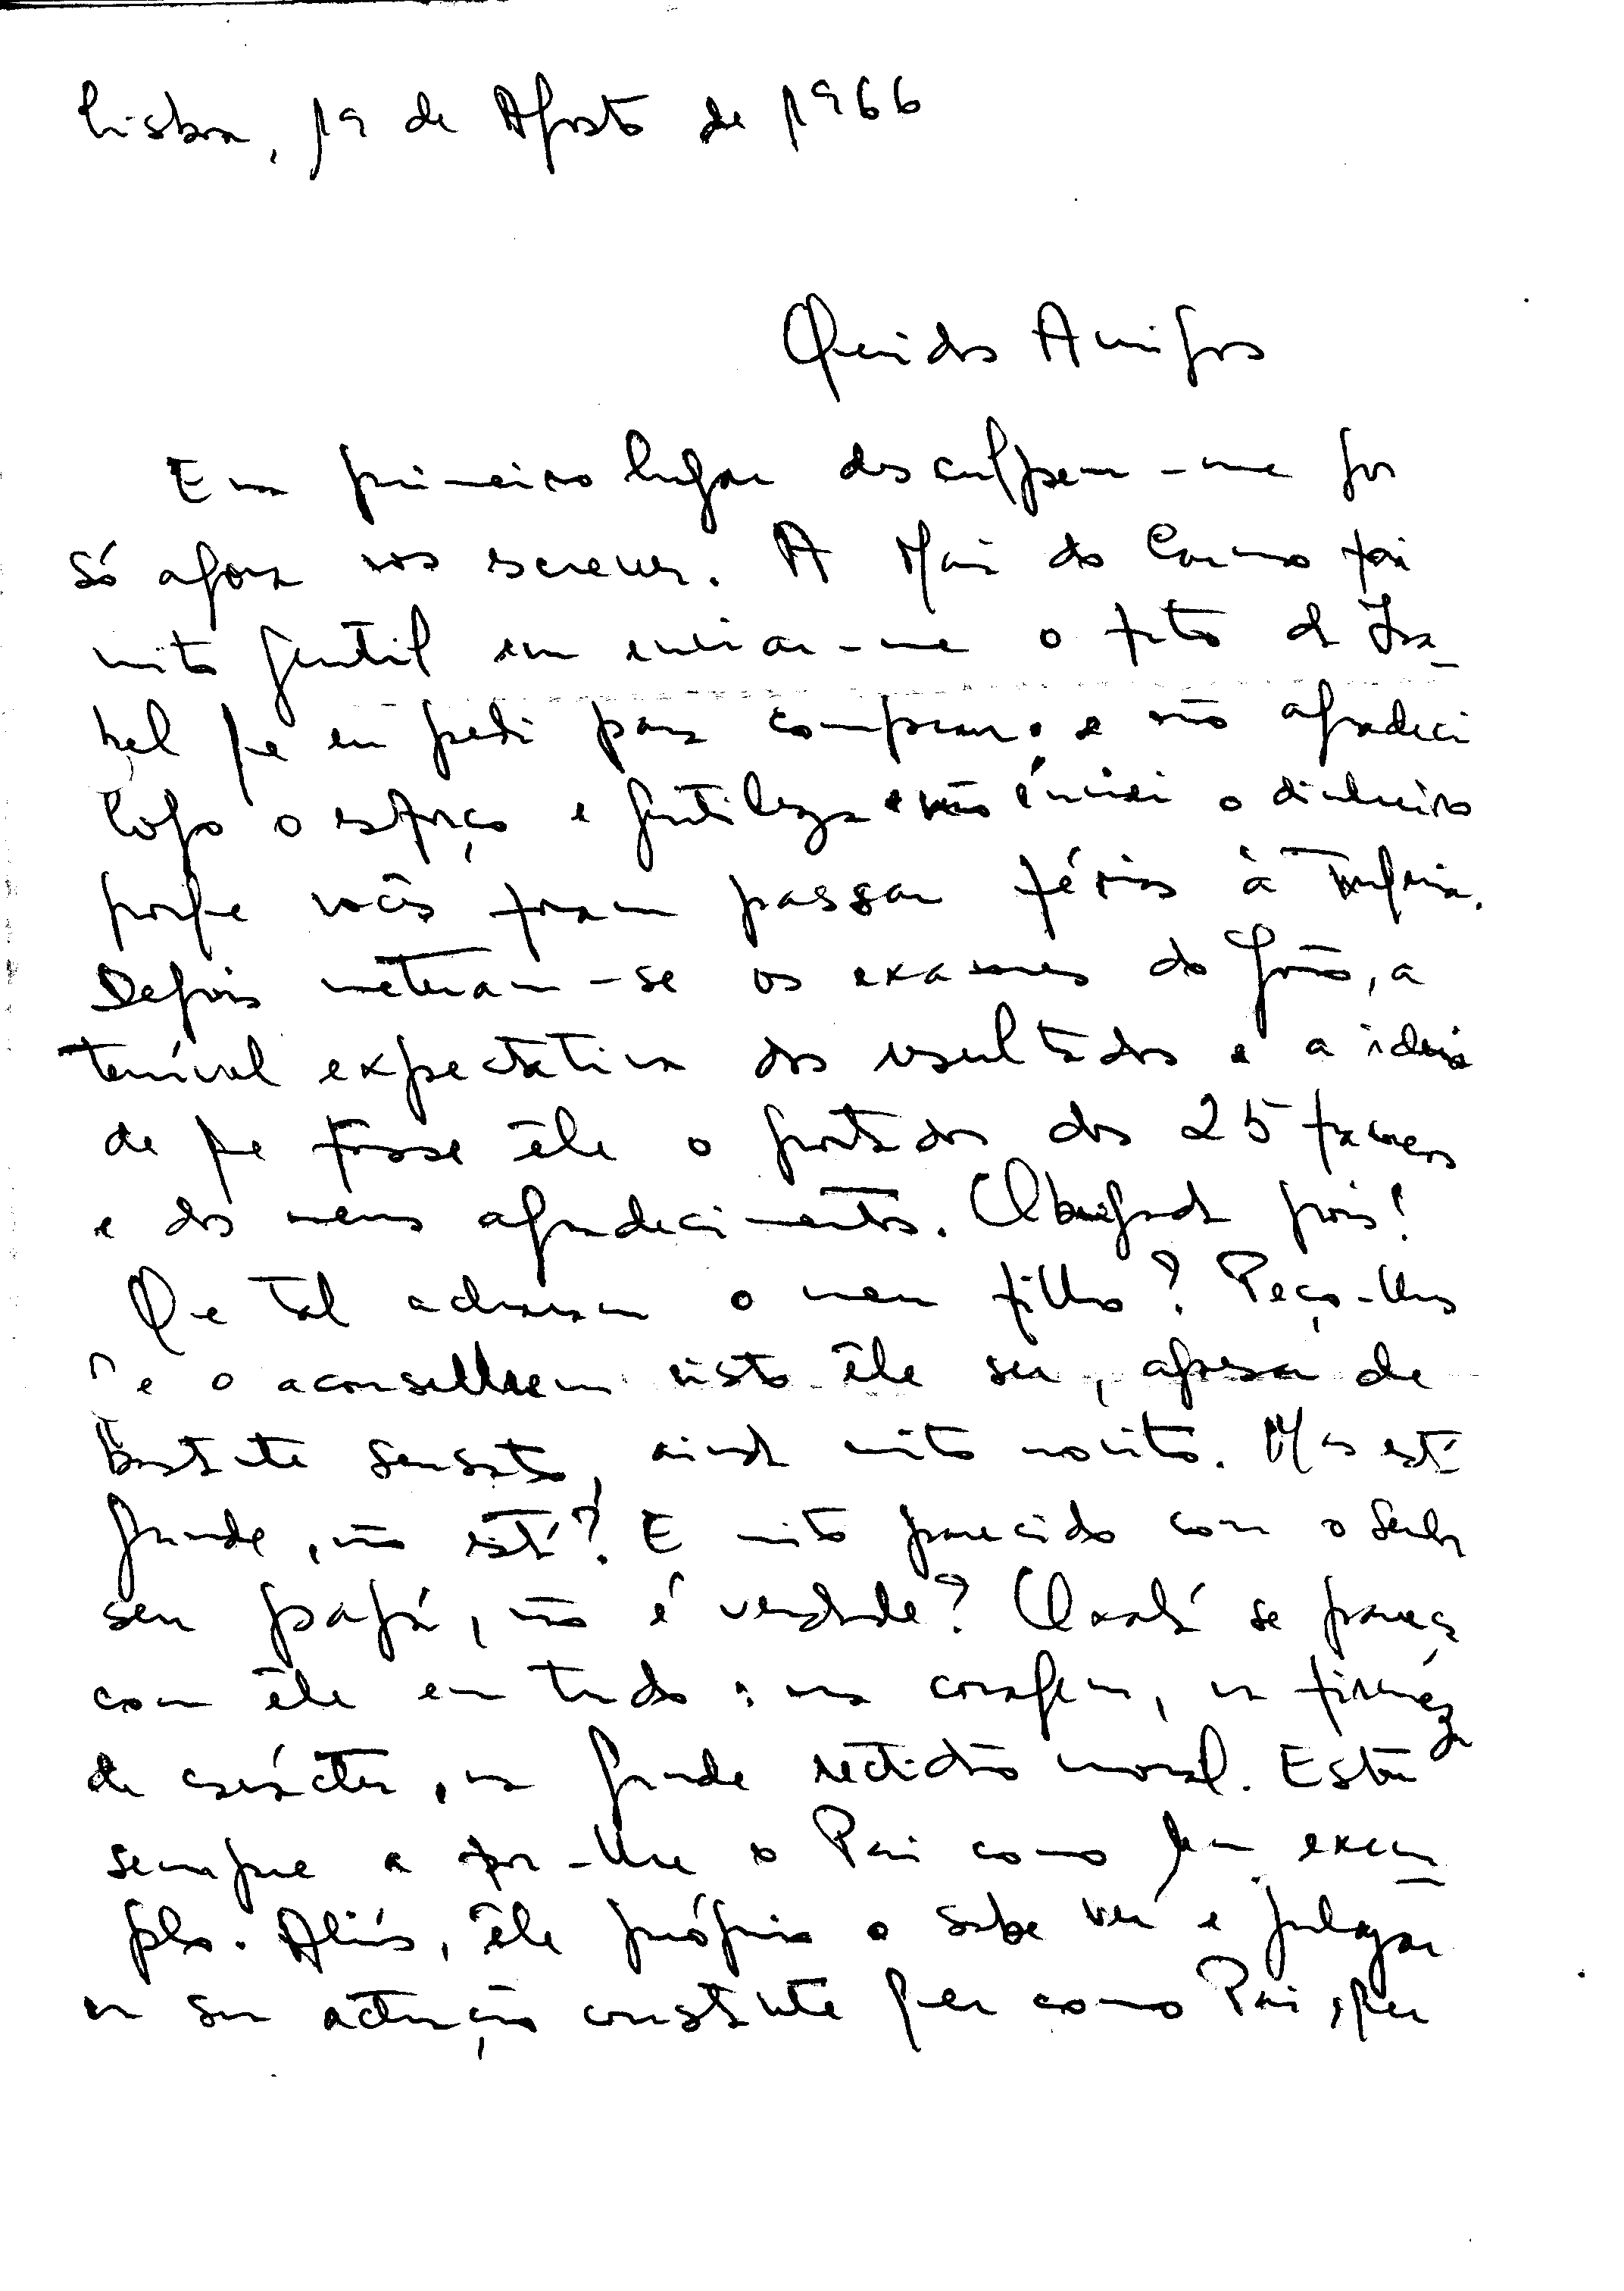 Lisboa, 19 de Agosto de 1966
Queridos Amigos
Em primeiro lugar desculpem-me por
só agora vos escrever. A Maria do Carmo foi
muito gentil em enviar-me o fato da Isa-
bel que eu pedi para comprar e não agradeci
logo o esforço e gentileza e não enviei o dinheiro
porque vocês foram passar férias à
Depois meteram-se os exames do João, a
terrível expectativa dos resultados e a ideia
de que fosse êle o portador dos 25 francos
e dos meus agradecimentos. Obrigada pois!
Que tal acharam o meu filho? Peço-lhes
que o aconselhem visto êle ser, apesar de
bastante sensato, ainda muito novito. Mas está
grande, não está? E muito parecido com o Senhor
seu papá, não é verdade? Oxalá se pareça
com êle em tudo: na coragem, na firmeza
de carácter, na grande rectidão moral. Estou
sempre a pôr-lhe o Pai como bom exem-
plo. Aliás, êle próprio o sabe ver e julgar
na sua actuação constante quer como Pai, quer